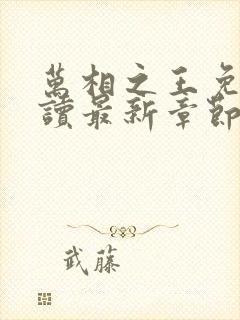 萬相之王免
讀最新章節
武藤